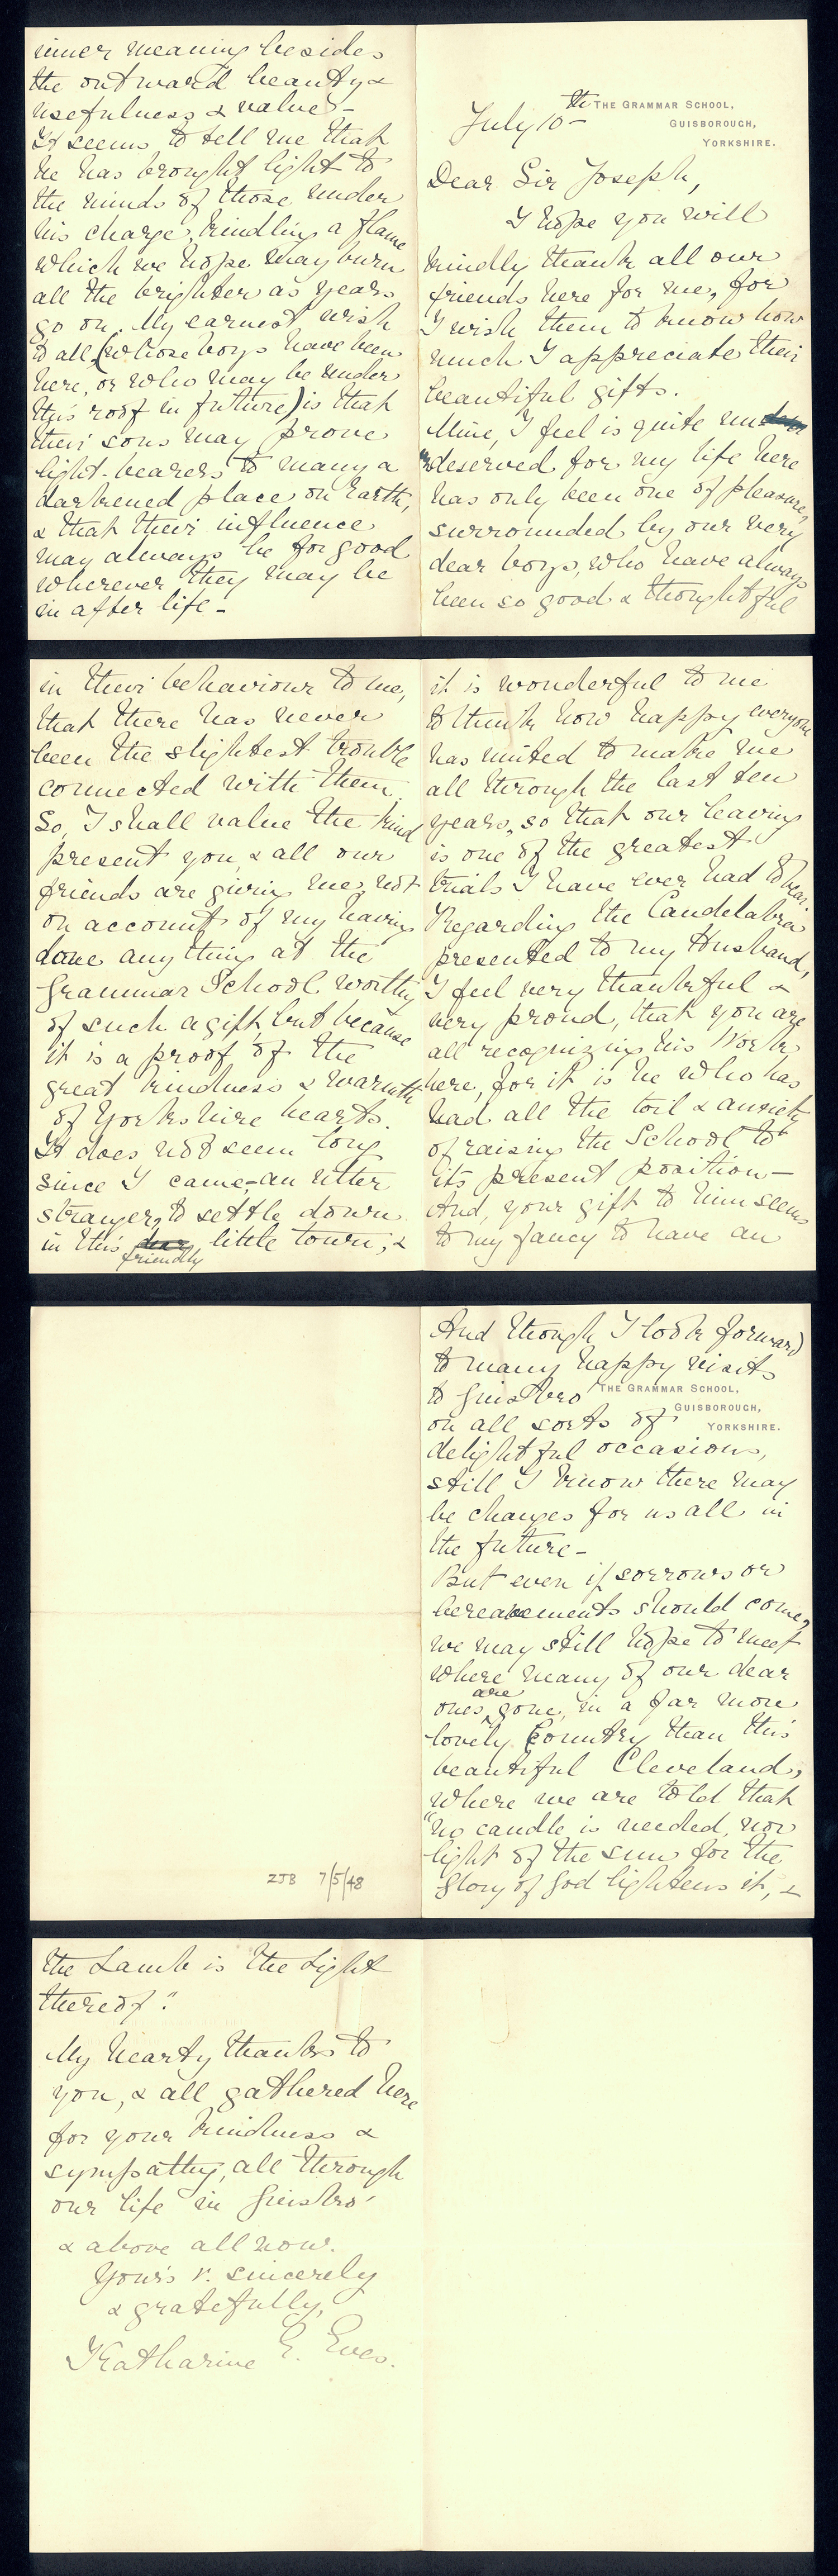 THE GRAMMAR SCHOOL,
GUISBOROUGH,
YORKSHIRE.
July 10th
Dear Sir Joseph,
I hope you will
kindly thank all our
friends here for me, for
I wish them to know how
much I appreciate their
beautiful gifts.
Mine, I feel is quite un
deserved for my life here
has only been one of pleasure,
surrounded by our very
dear boys, who have always
been so good & thoughtful
in their behaviour to me,
that there has never
been the slightest trouble
connected with them.
So, I shall value the kind
present you, & all our
friends are giving me, not
on account of my having
done anything at the
Grammar School worthy
of such a gift, but because
it is a proof of the
great kindness & warmth
of Yorkshire hearts.
It does not seem long
since I came, an utter
stranger, to settle down
in this friendly little town, &
it is wonderful to me
to think how happy everyone
has united to make me
all through the last ten
years, so that our leaving
is one of the greatest
trials I have ever had to bear.
Regarding the Candelabra
presented to my Husband,
I feel very thankful &
very proud, that you are
all recognizing his Work
here, for it is he who has
had all the toil & anxiety
of raising the School to
its present position—
And, your gift to him seems
to my fancy to have an
inner meaning besides
the outward beauty &
usefulness & value—
It seems to tell me that
he has brought light to
the minds of those under
his charge, kindling a flame
which we hope may burn
all the brighter as years
go on. My earnest wish
to all (whose boys have been
here, or who may be under
this roof in future) is that
their sons may prove
light-bearers to many a
darkened place on Earth,
& that their influence
may always be for good
wherever they may be
in after life—
And though I look forward
to many happy visits
to Guisbro'
THE GRAMMAR SCHOOL,
GUISBOROUGH,
YORKSHIRE.
on all sorts of
delightful occasions,
still I know there may
be changes for us all in
the future—
But even if sorrows or
bereavements should come,
we may still hope to meet
where many of our dear
ones are gone, in a far more
lovely Country than this
beautiful Cleveland,
where we are told that
"no candle is needed, nor
light of the sun for the
Glory of God lightens it, &
the Lamb is the Light
thereof".
My hearty thanks to
you, & all gathered here
for your kindness &
sympathy, all through
our life in Guisbro'
& above all now.
Yours v. sincerely
& gratefully,
Katharine E. Eves.
ZJB 7/5/48